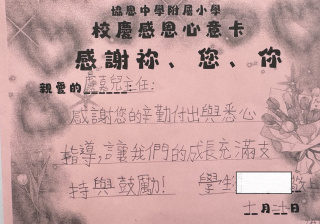 協恩中學附屬小學
校慶感恩心意卡
感謝祢、您、你
親愛的 盧嘉兒主任:
感謝您的辛勤付出與悉心
指導,讓我們的成長充滿支
持與鼓勵! 學生
十一月二十日